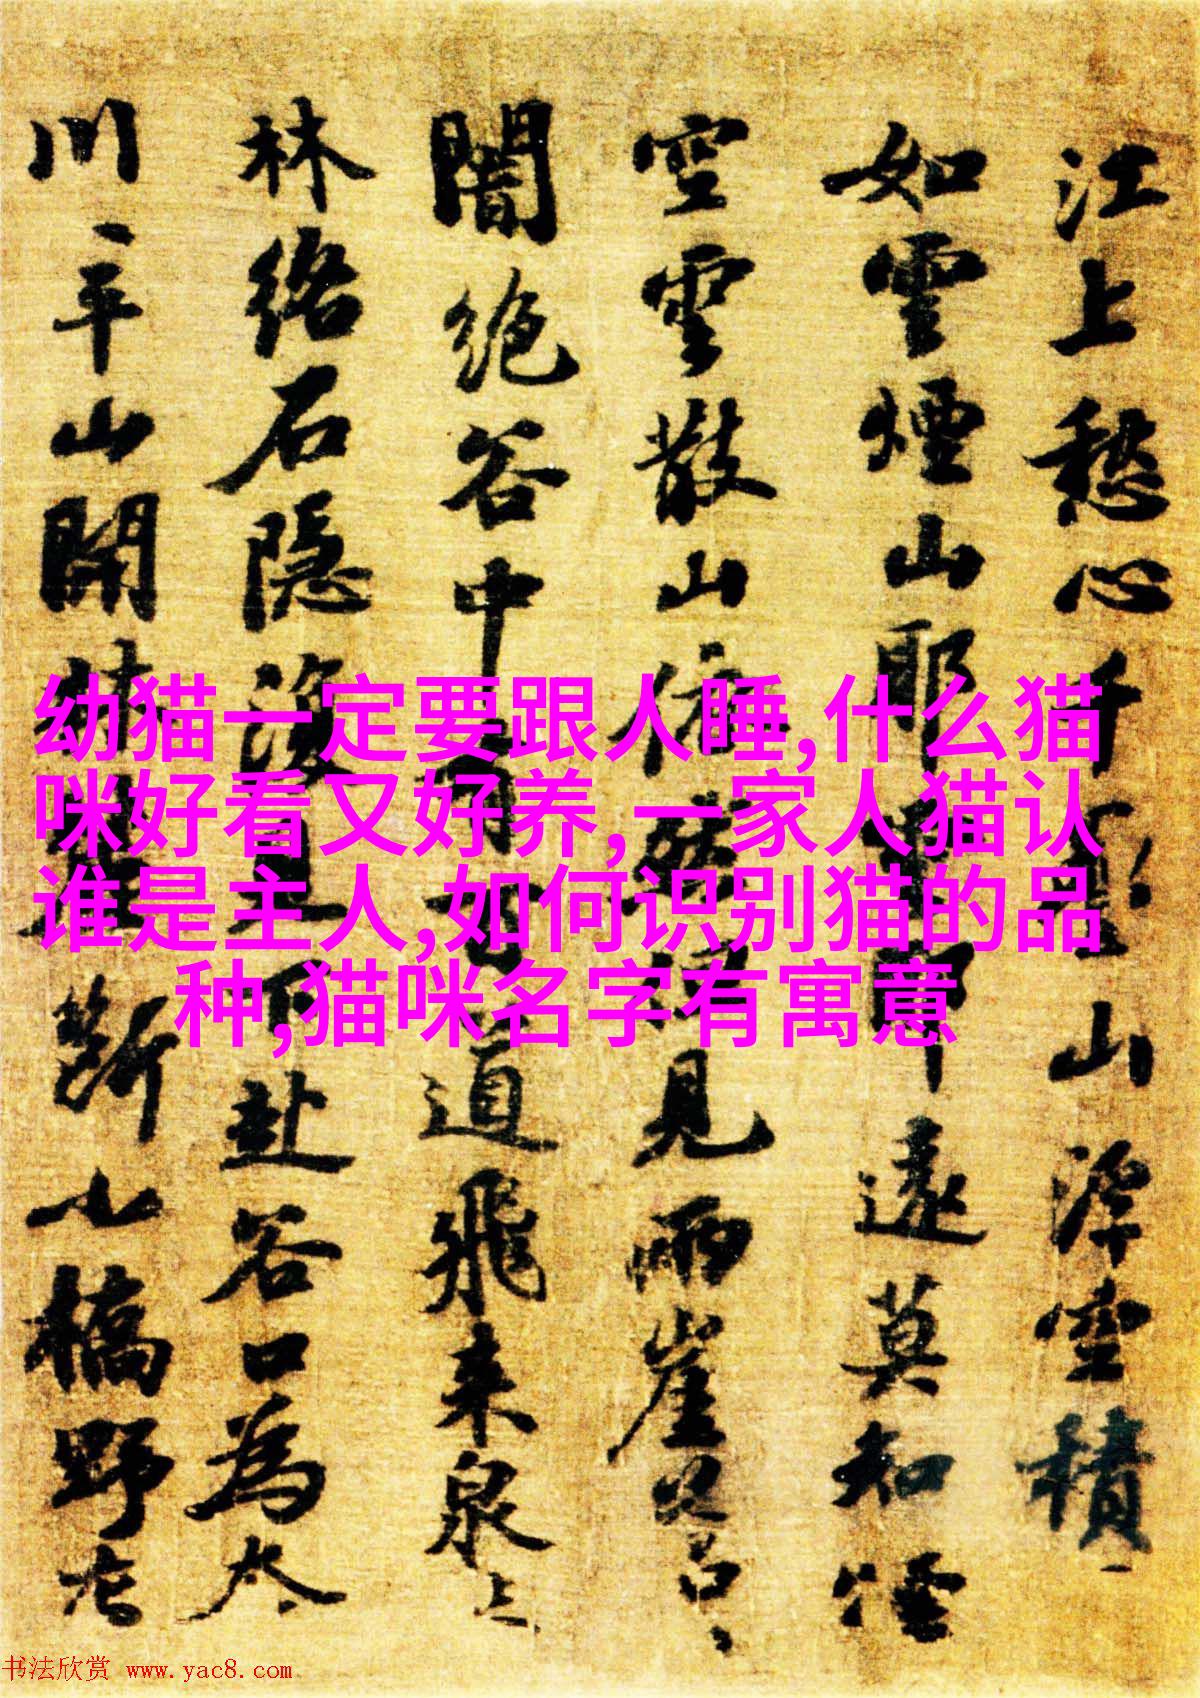 江上愁心千疊山浮空積
如雲煙山耶雲耶遠莫知煙
空雲散山依然但見兩崖
闇絕谷中有百道飛來泉
林絡石隱復見下赴谷口為
川平山開林麓斷小橋野
幼猫一定要跟人睡,什么猫
咪好看又好养,一家人猫认
谁是主人,如何识别猫的品
种,猫咪名字有寓意
书法欣赏 www.yac8.com